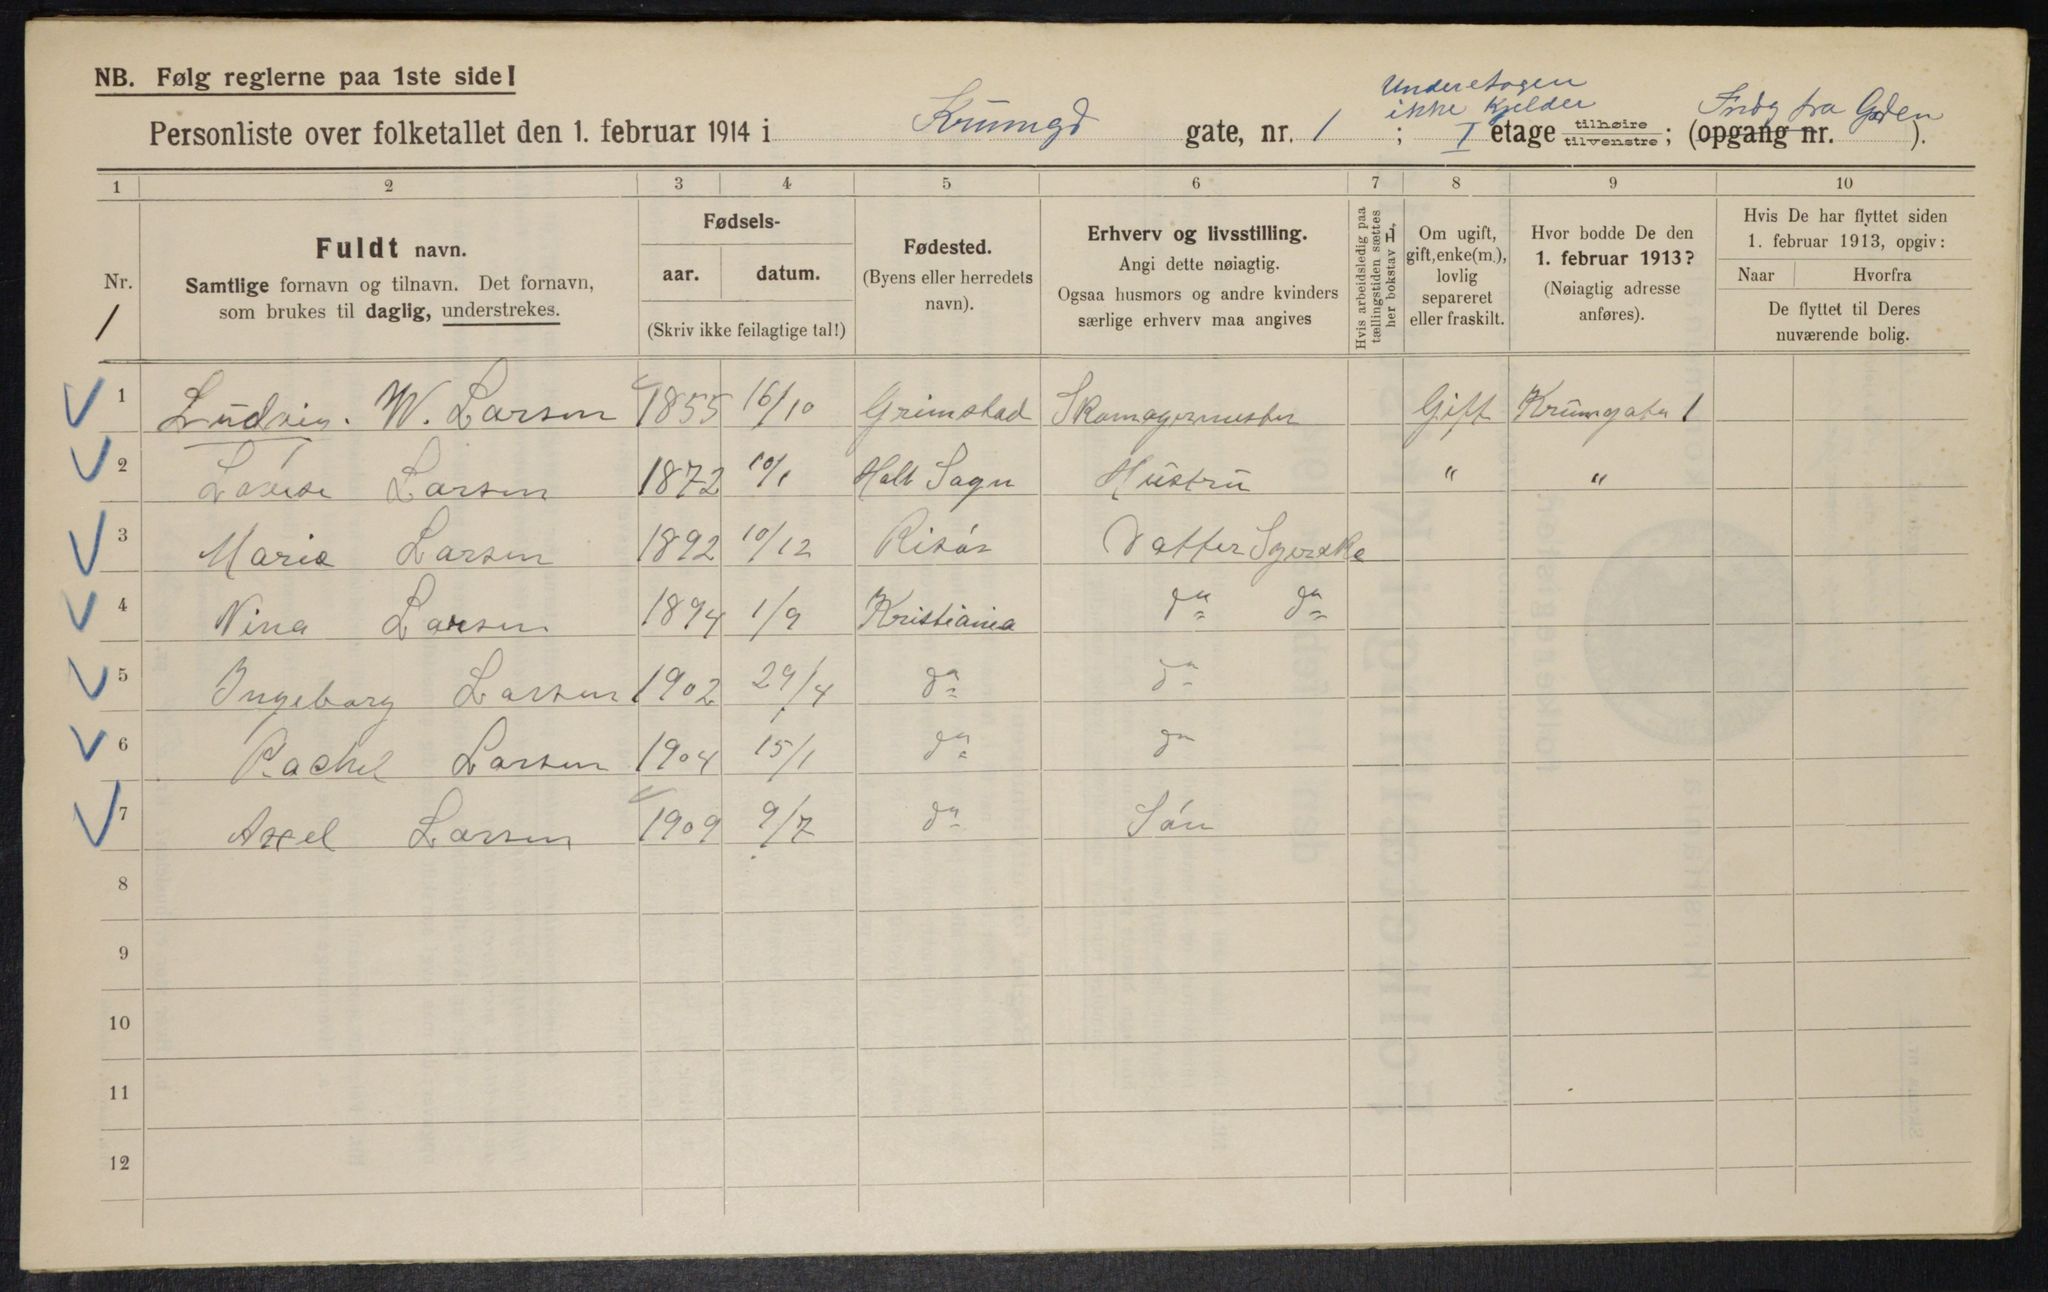 NB. Følg reglerne paa 1ste side!
Underetagen
ikke Kjelder
Indg fra Gaden
Personliste over folketallet den 1. februar 1914 i Krumgd gate, nr. 1 ; I etage tilhøire tilvenstre ; (opgang nr. ).
1 2 3 4 5 6 7 8 9 10
Nr.
1
Fuldt navn.
Samtlige fornavn og tilnavn. Det fornavn,
som brukes til daglig, understrekes.
Fødsels-
aar. datum.
(Skriv ikke feilagtige tal!)
Fødested.
(Byens eller herredets
navn).
Erhverv og livsstilling.
Angi dette nøiagtig.
Ogsaa husmors og andre kvinders
særlige erhverv maa angives
Hvis arbeidsledig paa
tællingstiden sættes
her bokstav L.
Om ugift,
gift, enke(m.),
lovlig
separeret
eller fraskilt.
Hvor bodde De den
1. februar 1913?
(Nøiagtig adresse
anføres).
Hvis De har flyttet siden
1. februar 1913, opgiv:
Naar Hvorfra
De flyttet til Deres
nuværende bolig.
1 Ludvig. W. Larsen 1855 16/10 Grimstad Skomagermester Gift Krumgaten 1
2 Lovise Larsen 1872 10/1 Holt Sogn Hustru " "
3 Maria Larsen 1892 10/12 Risør Datter Syerske
4 Nina Larsen 1894 1/9 Kristiania do do
5 Ingeborg Larsen 1902 29/4 do do
6 Rachel Larsen 1904 15/1 do do
7 Axel Larsen 1909 9/7 do Søn
8
9
10
11
12